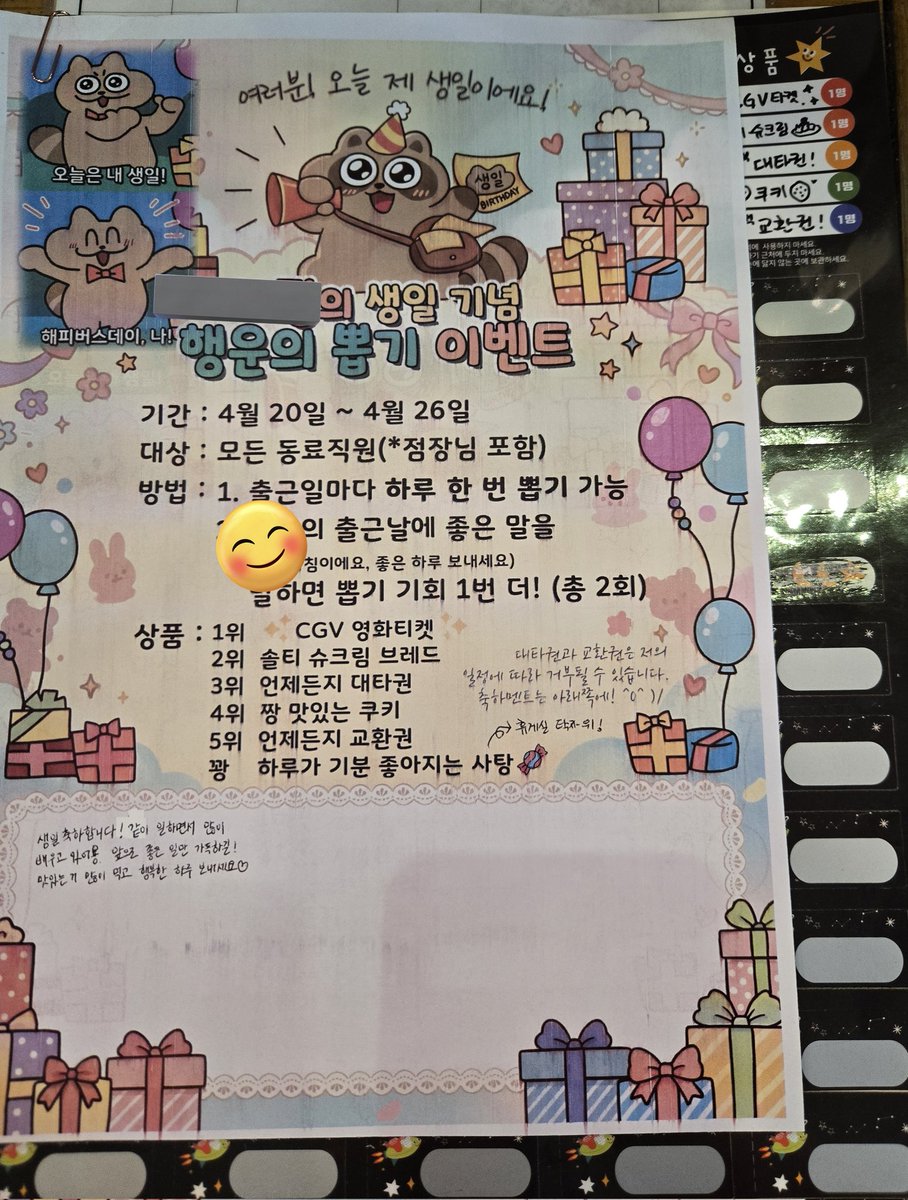 여러분! 오늘 제 생일이에요!
오늘은 내 생일!
생일
BIRTHDAY
해피버스데이, 나!
의 생일 기념
행운의 뽑기 이벤트
기간 : 4월 20일 ~ 4월 26일
대상 : 모든 동료직원(*점장님 포함)
방법 : 1. 출근일마다 하루 한 번 뽑기 가능
의 출근날에 좋은 말을
침이에요, 좋은 하루 보내세요)
말하면 뽑기 기회 1번 더! (총 2회)
상품 : 1위 CGV 영화티켓
2위 솔티 슈크림 브레드
3위 언제든지 대타권
4위 짱 맛있는 쿠키
5위 언제든지 교환권
꽝 하루가 기분 좋아지는 사탕
대타권과 교환권은 저의
일정에 따라 거부될 수 있습니다.
축하멘트는 아래쪽에! ^0^)/
휴게실 탁자 위!
생일 축하합니다! 같이 일하면서 많이
배우고 와이용. 앞으로 좋은 일만 가득하길!
맛있는거 많이 먹고 행복한 하루 보내세요♡
상품
CGV티켓 1명
슈크림 1명
대타권! 1명
쿠키 1명
교환권! 1명
에 사용하지 마세요.
기 근처에 두지 마세요.
에 닿지 않는 곳에 보관하세요.